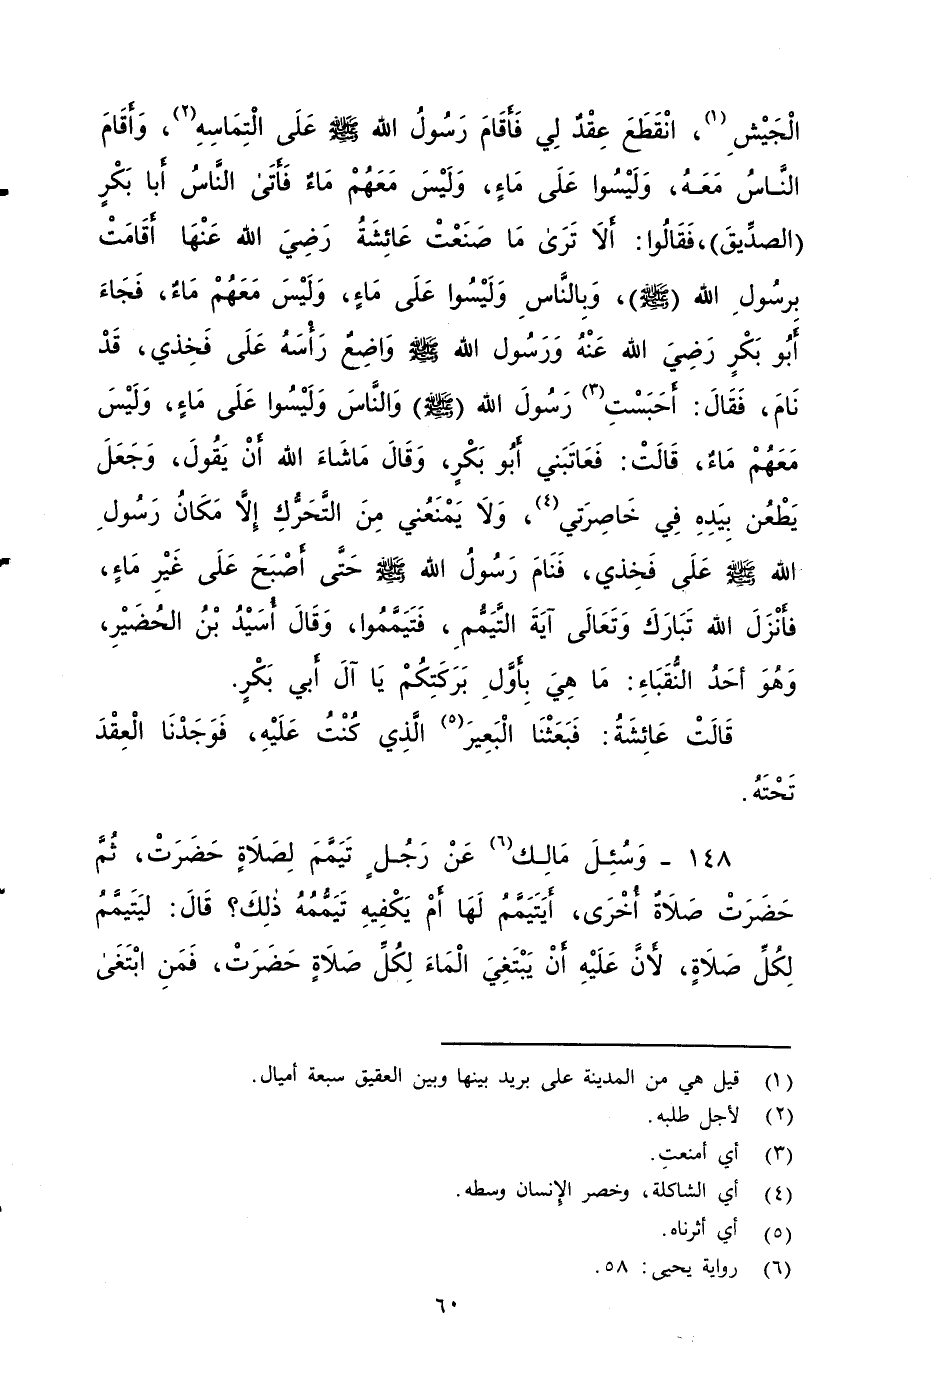 الْجَيْشِ (١)، انْقَطَعَ عِقْدٌ لِي فَأَقَامَ رَسُولُ الله ﷺ عَلَى الْتِمَاسِهِ(٢)، وَأَقَامَ
النَّاسُ مَعَهُ، وَلَيْسُوا عَلَى مَاءٍ، وَلَيْسَ مَعَهُمْ مَاءٌ فَأَتَىٰ النَّاسُ أَبا بَكْرٍ
(الصدِّيقَ)،فَقَالُوا: أَلَا تَرَىٰ مَا صَنَعْتْ عَائِشَةُ رَضِيَ الله عَنْهَا أَقَامَتْ
بِرسُولِ الله (ﷺ)، وَبِالنَّاسِ وَلَيْسُوا عَلَى مَاءٍ، وَلَيْسَ مَعَهُمْ مَاءٌ، فَجَاءَ
أَبُو بَكْرٍ رَضِيَ الله عَنْهُ وَرَسُول الله ﷺ وَاضِعٌ رَأْسَهُ عَلَى فَخِذي، قَدْ
نَامَ، فَقَالَ: أَحَبَسْتِ(٣) رَسُولَ الله (ﷺ) وَالنَّاسَ وَلَيْسُوا عَلَى مَاءٍ، وَلَيْسَ
مَعَهُمْ مَاءٌ، قَالَتْ: فَعَاتَبَني أَبُو بَكْرٍ، وَقَالَ مَاشَاءَ الله أَنْ يَقُولَ، وَجَعَلَ
يَطْعُن بِيَدِهِ فِي خَاصِرَتي(٤)، وَلَا يَمْنَعُني مِنَ التَّحَرُّكِ إِلَّا مَكَانُ رَسُولِ
الله ﷺ عَلَى فَخِذي، فَنَامَ رَسُولُ الله ﷺ حَتَّى أَصْبَحَ عَلَى غَيْرِ مَاءٍ،
فأَنْزَلَ الله تَبَارَكَ وَتَعَالَى آيَةَ التَّيَمُّمِ، فَتَيَمَّمُوا، وَقَالَ أُسَيْدُ بْنُ الحُضَيْرِ،
وَهُوَ أحَدُ النُّقَبَاءِ: مَا هِيَ بِأَوَّلِ بَرَكَتِكُمْ يَا آلَ أَبي بَكْرٍ.
قَالَتْ عَائِشَةُ: فَبَعَثْنَا الْبَعِيرَ(٥) الَّذِي كُنْتُ عَلَيْهِ، فَوَجَدْنَا الْعِقْدَ
تَحْتَهُ.
١٤٨ - وَسُئِلَ مَالِك(٦) عَنْ رَجُلٍ تَيَمَّمَ لِصَلَاةٍ حَضَرَتْ، ثُمَّ
حَضَرَتْ صَلَاةٌ أُخْرَى، أَيَتَيَمَّمُ لَهَا أَمْ يَكْفِيهِ تَيَمُّمُهُ ذٰلِكَ؟ قَالَ: لِيَتَيمَّمُ
لِكُلِّ صَلَاةٍ، لأَنَّ عَلَيْهِ أَنْ يَبْتَغِيَ الْمَاءَ لِكُلِّ صَلَاةٍ حَضَرَتْ، فَمَنِ ابْتَغَىٰ
(١) قيل هي من المدينة على بريد بينها وبين العقيق سبعة أميال.
(٢) لأجل طلبه.
(٣) أي أمنعتِ.
(٤) أي الشاكلة، وخصر الإنسان وسطه.
(٥) أي أثرناه.
(٦) رواية يحيى: ٥٨.
٦٠